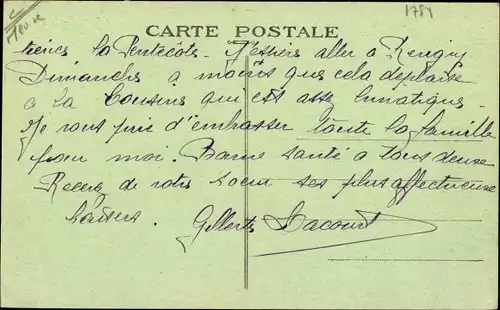 Meuse
1784
CARTE POSTALE
la Pentecôte. J'espère aller a
Dimanche a moins que cela deplaise
a la Cousine qui est assez lunatique.
Je vous prie d'embrasser toute la famille
pour moi. Bonne santé a tous deux
Recevez de votre soeur ses plus affectueux
baisers. Gilberte Lacourt